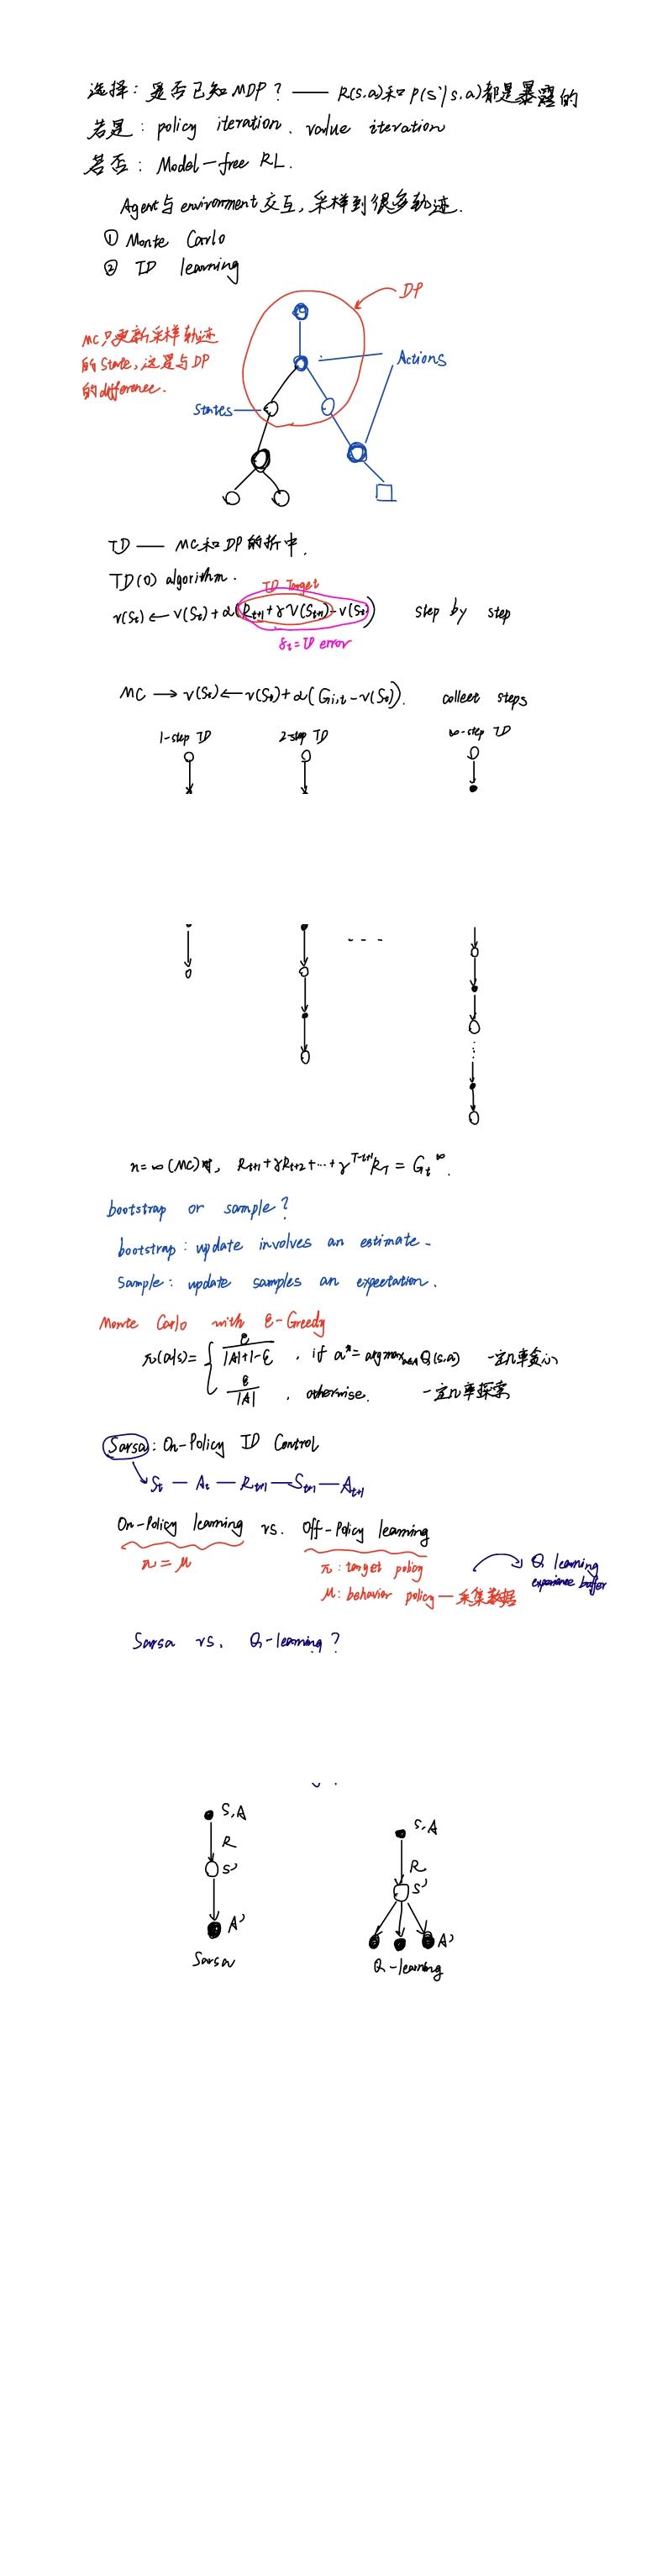 选择: 是否已知MDP? —— R(s.a)和 p(s'|s.a)都是暴露的
若是: policy iteration、value iteration
若否: Model-free RL.
Agent与environment交互,采样到很多轨迹.
① Monte Carlo
② TD learning
DP
MC只更新采样轨迹
的State,这是与DP
的difference.
Actions
States
TD —— MC和DP的折中.
TD(0) algorithm.
TD Target
v(St) ← v(St) + α(Rt+1 + γV(St+1) - v(St)) step by step
δt = TD error
MC → v(St) ← v(St) + α(Gi,t - v(St)). collect steps
1-step TD 2-step TD ∞-step TD
- - -
n=∞(MC)时, Rt+1 + γRt+2 + ... + γ^T-t+1 RT = Gt^∞.
bootstrap or sample?
bootstrap: update involves an estimate.
Sample: update samples an expectation.
Monte Carlo with ε-Greedy
π(a|s) = { ε / |A|+1-ε , if a* = argmax a∈A Q(s.a) 一定几率贪心
ε / |A| , otherwise. 一定几率探索
Sarsa: On-Policy TD Control
St — At — Rt+1 — St+1 — At+1
On-Policy learning vs. Off-Policy learning
π = μ
π: target policy
μ: behavior policy — 采集数据
Q learning
experience buffer
Sarsa vs. Q-learning?
S,A
R
S'
A'
Sarsa
S.A
R
S'
A'
Q-learning